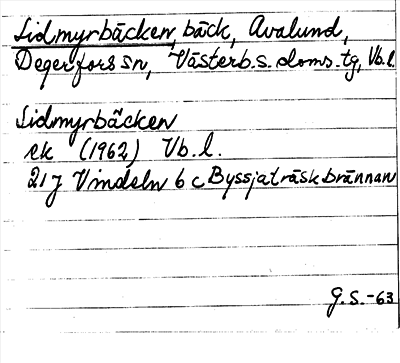 Lidmyrbäcken, bäck, Avalund,
Degerfors sn, Västerb.s. doms.tg, Vb.l.
Lidmyrbäcken
ek (1962) Vb.l.
21J Vindeln 6 c Byssjaträskbrännan
G.S.-63